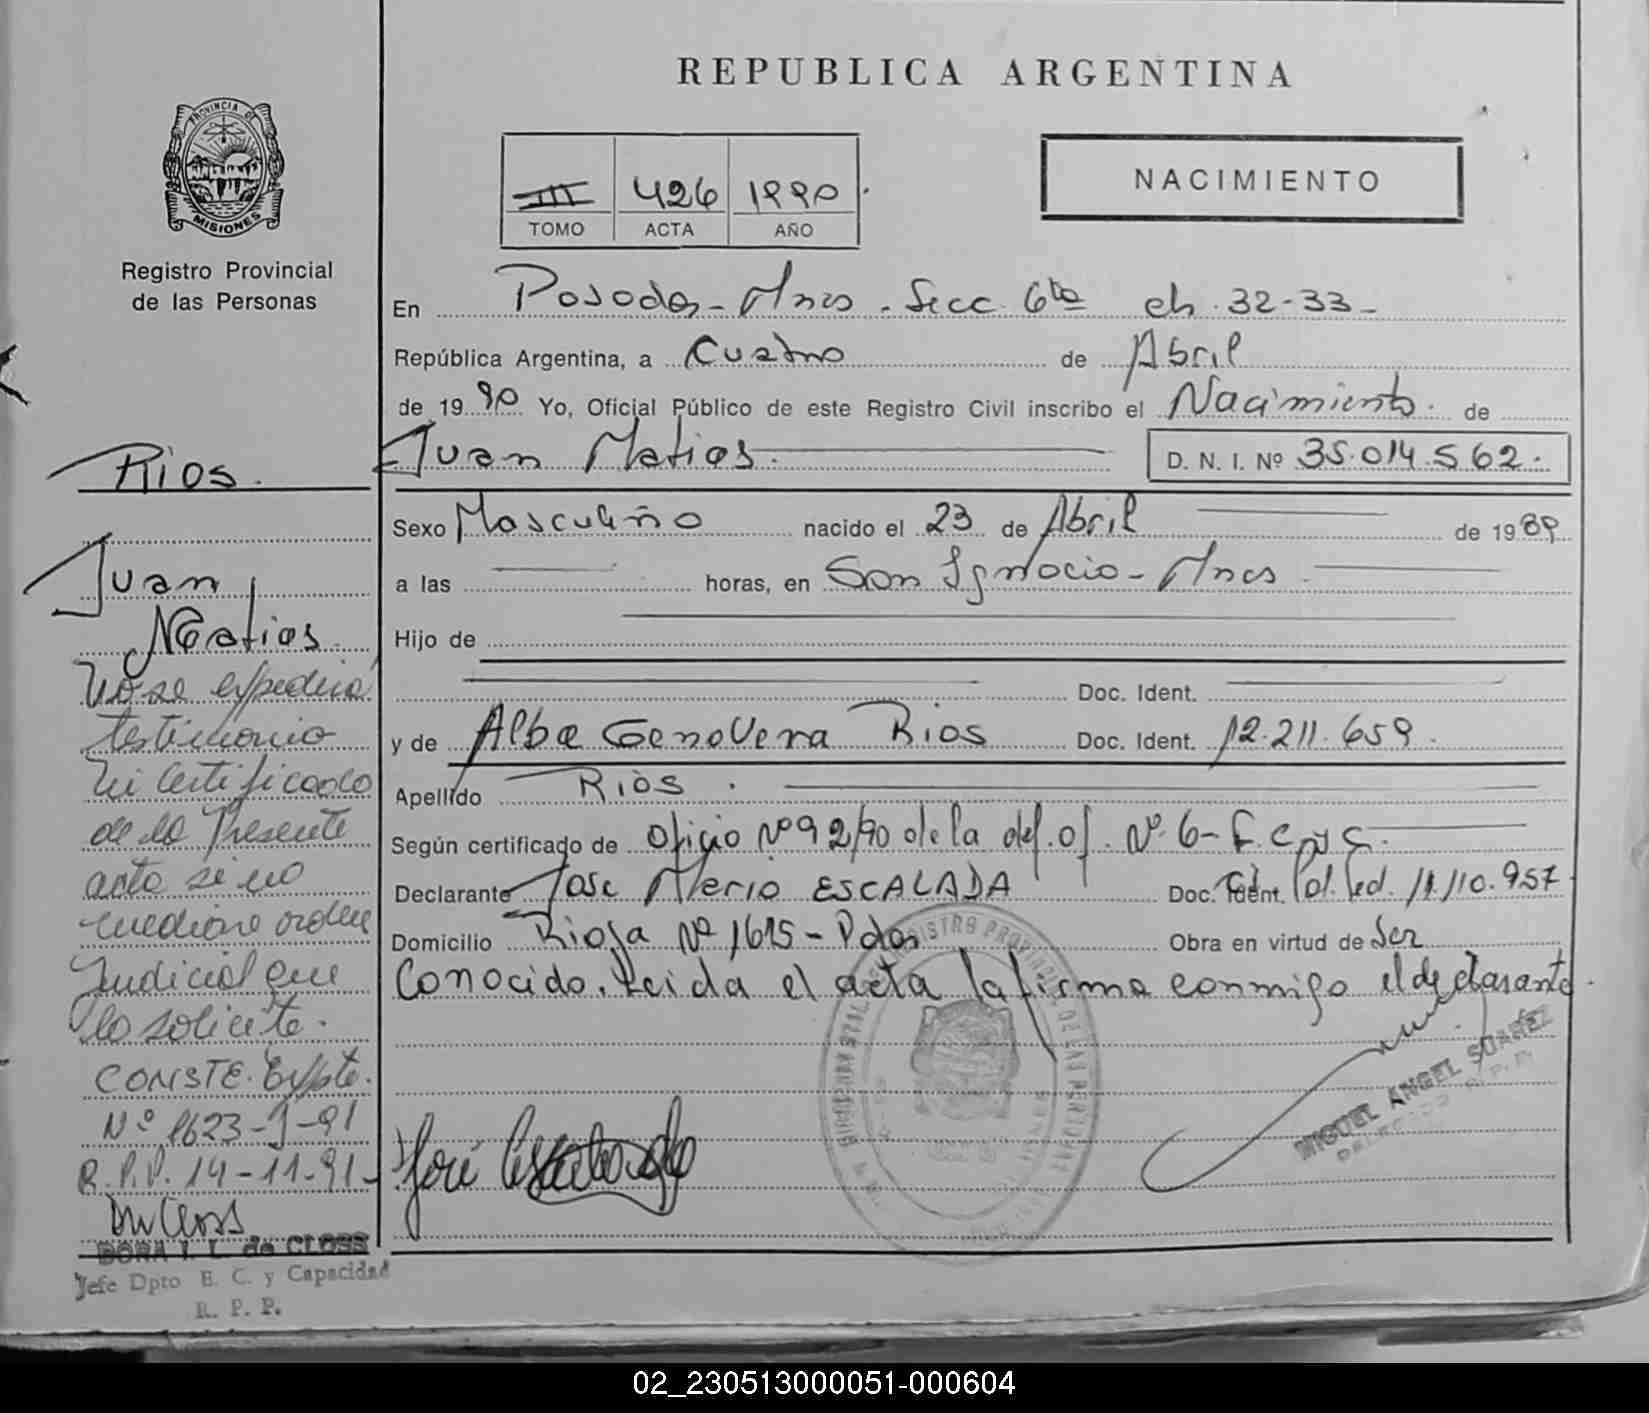 REPUBLICA ARGENTINA
PROVINCIA DE
MISIONES
Registro Provincial
de las Personas
III 426 1990
TOMO ACTA AÑO
NACIMIENTO
En Posadas - Mnes. Secc. 6ta ch. 32-33-
República Argentina, a Cuatro de Abril
de 1990. Yo, Oficial Público de este Registro Civil inscribo el Nacimiento. de
Juan Matias. D. N. I. Nº 35.014.562.
Sexo Masculino nacido el 23 de Abril de 1989
a las horas, en San Ignacio - Mnes
Hijo de
Doc. Ident.
y de Alba Genovera Rios Doc. Ident. 12.211.659.
Apellido Rios.
Según certificado de Oficio Nº 92/90 de la def. of. Nº 6-
Declarante Jose Merio ESCALADA Doc. Ident. Pol. Fed. 11.110.957
Domicilio Rioja Nº 1615 - Pdas Obra en virtud de Ser
Conocido. Leida el acta la firma conmigo el declarante.
José Escalada
MIGUEL ANGEL SUAREZ
DELEGADO R. P. P.
Rios.
Juan
Matias.
No se expedira
testimonio
ni Certificado
de la Presente
acta si no
mediare orden
Judicial que
lo solicite.
CONSTE. Expte.
Nº 1623-J-91
R.P.P. 14-11-91-
DORA I. L. de CLOSS
Jefe Dpto E. C. y Capacidad
R. P. P.
02_230513000051-000604